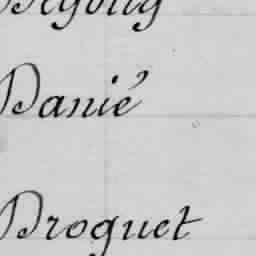 Danié
Droguet